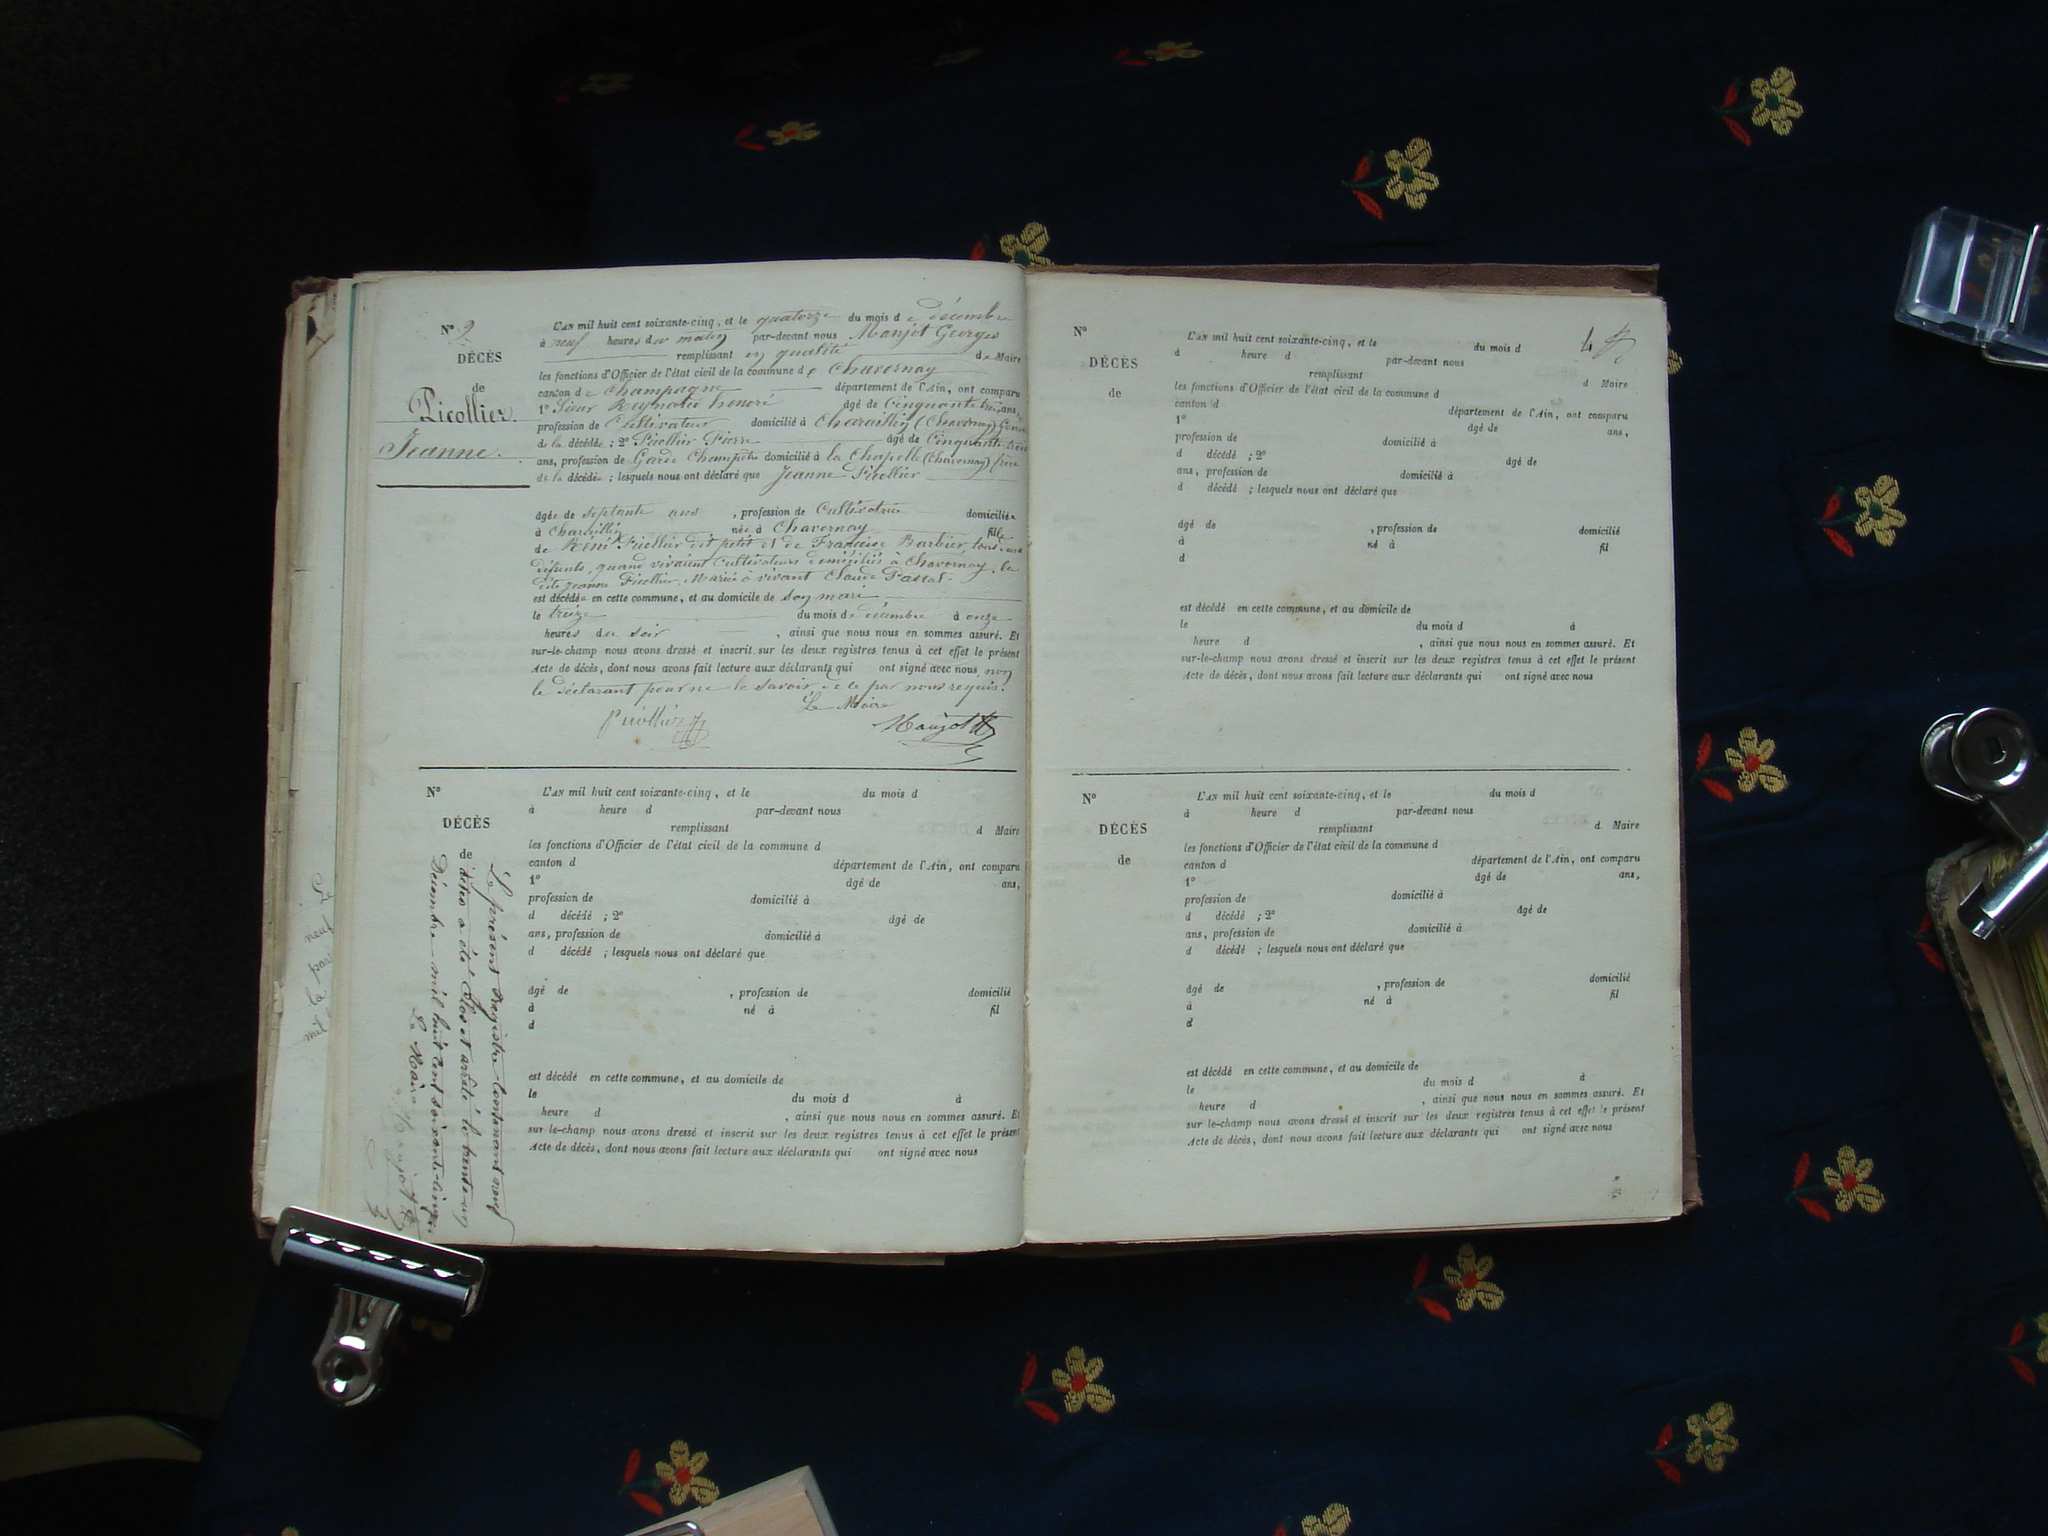 N° 9
DÉCÈS
de
Picollier
Jeanne.
L'AN mil huit cent soixante-cinq, et le quatorze du mois de décembre
à neuf heures du matin par-devant nous Manjot Georges
remplissant en qualité de Maire
les fonctions d'Officier de l'état civil de la commune de Chavornay
canton de Champagne département de l'Ain, ont comparu
1° Sieur Reynaud honoré âgé de Cinquante trois ans,
profession de Cultivateur domicilié à Charaillin (Chavornay)
de la décédée ; 2° Picollier Pierre âgé de Cinquante trois
ans, profession de Garde Champêtre domicilié à la Chapelle (Chavornay) frère
de la décédée ; lesquels nous ont déclaré que Jeanne Picollier
âgée de septante ans , profession de Cultivatrice domiciliée
à Charaillin née à Chavornay fille
de Réné Picollier dit petit et de Françoise Barbier, tous deux
défunts, quand vivaient Cultivateurs domiciliés à Chavornay, la
dite Jeanne Picollier, Mariée à vivant Claude Passal.
est décédée en cette commune, et au domicile de son mari
le treize du mois de décembre à onze
heures du soir , ainsi que nous nous en sommes assuré. Et
sur-le-champ nous avons dressé et inscrit sur les deux registres tenus à cet effet le présent
Acte de décès, dont nous avons fait lecture aux déclarants qui ont signé avec nous non
le déclarant pour ne le savoir de ce par nous requis.
Le Maire
Picollier Manjot
N°
DÉCÈS
de
Le présent registre contenant neuf
décès a été Clos et arrêté le trente un
Décembre mil huit cent soixante-cinq
Le Maire
Manjot
L'AN mil huit cent soixante-cinq, et le du mois d
à heure d par-devant nous
remplissant d Maire
les fonctions d'Officier de l'état civil de la commune d
canton d département de l'Ain, ont comparu
1° âgé de ans,
profession de domicilié à
d décédé ; 2° âgé de
ans, profession de domicilié à
d décédé ; lesquels nous ont déclaré que
âgé de , profession de domicilié
à né à fil
d
est décédé en cette commune, et au domicile de
le du mois d à
heure d , ainsi que nous nous en sommes assuré. Et
sur le-champ nous avons dressé et inscrit sur les deux registres tenus à cet effet le présent
Acte de décès, dont nous avons fait lecture aux déclarants qui ont signé avec nous
N°
DÉCÈS
de
4
L'AN mil huit cent soixante-cinq, et le du mois d
à heure d par-devant nous
remplissant d Maire
les fonctions d'Officier de l'état civil de la commune d
canton d département de l'Ain, ont comparu
1° âgé de ans,
profession de domicilié à
d décédé ; 2° âgé de
ans, profession de domicilié à
d décédé ; lesquels nous ont déclaré que
âgé de , profession de domicilié
à né à fil
d
est décédé en cette commune, et au domicile de
le du mois d à
heure d , ainsi que nous nous en sommes assuré. Et
sur-le-champ nous avons dressé et inscrit sur les deux registres tenus à cet effet le présent
Acte de décès, dont nous avons fait lecture aux déclarants qui ont signé avec nous
N°
DÉCÈS
de
L'AN mil huit cent soixante-cinq, et le du mois d
à heure d par-devant nous
remplissant d Maire
les fonctions d'Officier de l'état civil de la commune d
canton d département de l'Ain, ont comparu
1° âgé de ans,
profession de domicilié à
d décédé ; 2° âgé de
ans, profession de domicilié à
d décédé ; lesquels nous ont déclaré que
âgé de , profession de domicilié
à né à fil
d
est décédé en cette commune, et au domicile de
le du mois d à
heure d , ainsi que nous nous en sommes assuré. Et
sur-le-champ nous avons dressé et inscrit sur les deux registres tenus à cet effet le présent
Acte de décès, dont nous avons fait lecture aux déclarants qui ont signé avec nous